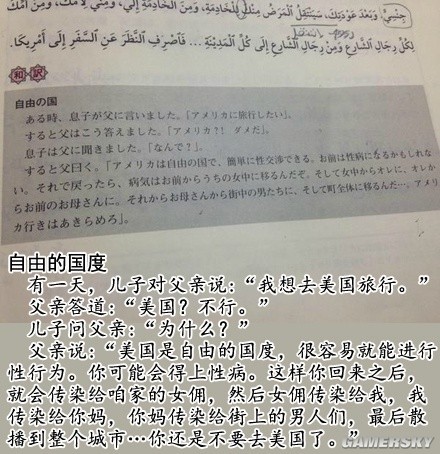 جِنْسِيٍّ وَبَعْدَ عَوْدَتِكَ، سَيَنْتَقِلُ الْمَرَضُ مِنْكَ لِلْخَادِمَةِ، وَمِنَ الْخَادِمَةِ إِلَيَّ، وَمِنِّي لِأُمِّكَ، وَمِنْ أُمِّكَ
لِكُلِّ رِجَالِ الشَّارِعِ وَمِنْ رِجَالِ الشَّارِعِ إِلَى كُلِّ الْمَدِينَةِ ... فَاصْرِفِ النَّظَرَ عَنِ السَّفَرِ إِلَى أَمْرِيكَا.
和訳
自由の国
ある時、息子が父に言いました。「アメリカに旅行したい」。
すると父はこう答えました。「アメリカ?! ダメだ」。
息子は父に聞きました。「なんで?」。
すると父曰く。「アメリカは自由の国で、簡単に性交渉できる。お前は性病になるかもしれな
い。それで戻ったら、病気はお前からうちの女中に移るんだぞ。そして女中からオレに、オレか
らお前のお母さんに。それからお母さんから街中の男たちに、そして町全体に移るんだ…。アメリ
カ行きはあきらめろ」。
自由的国度
有一天，儿子对父亲说：“我想去美国旅行。”
父亲答道：“美国？不行。”
儿子问父亲：“为什么？”
父亲说：“美国是自由的国度，很容易就能进行
性行为。你可能会得上性病。这样你回来之后，
就会传染给咱家的女佣，然后女佣传染给我，我
传染给你妈，你妈传染给街上的男人们，最后散
播到整个城市…你还是不要去美国了。”
GAMERSKY